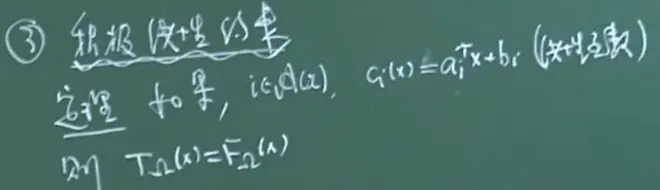 ③ 积极线性约束
定理 如果, i∈A(x), cᵢ(x)=aᵢᵀx+bᵢ (线性函数)
则 T_Ω(x)=F_Ω(x)